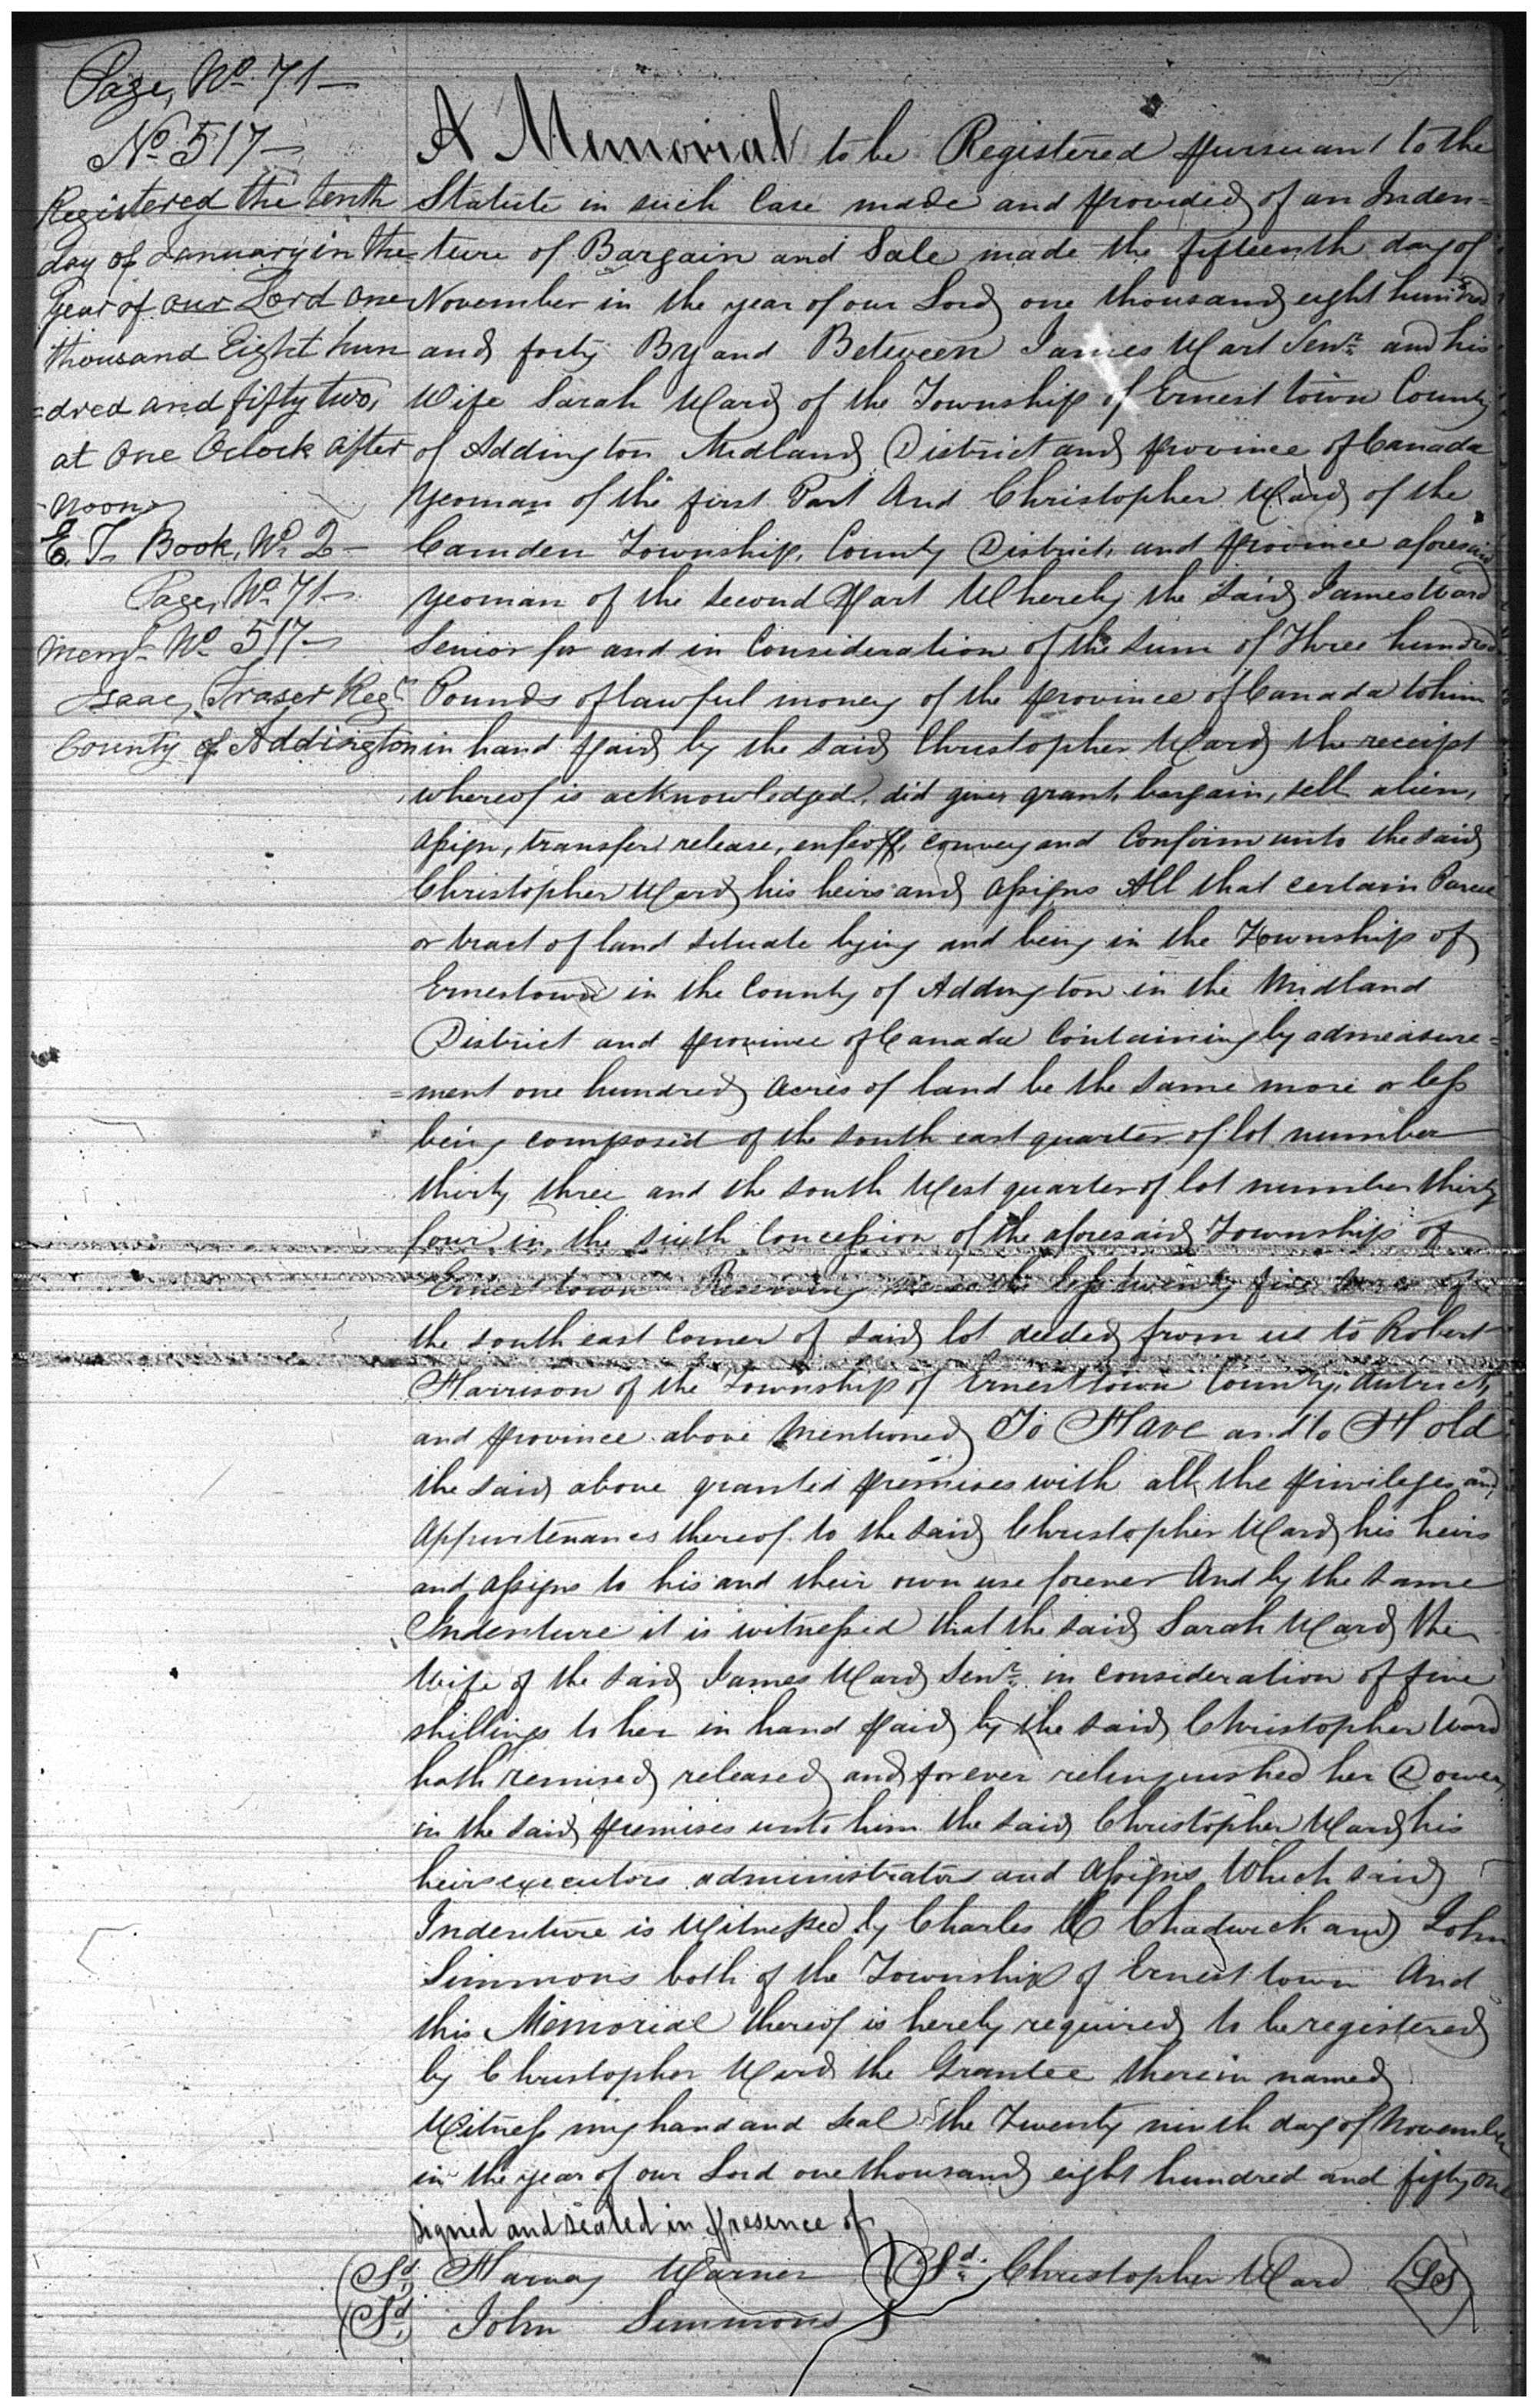 Page, No. 71—
No. 517—
Registered the tenth
day of January in the
Year of our Lord One
thousand Eight hun
=dred and fifty two,
at One Oclock after
-noon
E. T. Book, No. 2—
Page, No. 71—
Meml. No. 517—
Isaac, Fraser Regr.
County of Addington
A Memorial to be Registered pursuant to the
Statute in such Case made and provided of an Inden=
ture of Bargain and Sale made the fifteenth day of
November in the year of our Lord one thousand eight hundred
and forty By and Between James Wart Senr. and his
Wife Sarah Ward of the Township of Ernest town County
of Addington Midland District and province of Canada
yeoman of the first Part And Christopher Ward of the
Camden Township, County District, and province aforesaid
yeoman of the second part Whereby the said James Ward
Senior for and in Consideration of the sum of Three hundred
Pounds of lawful money of the province of Canada to him
in hand paid by the said Christopher Ward the receipt
whereof is acknowledged, did give, grant, bargain, sell alien,
assign, transfer release, enfeoff, convey and Confirm unto the said
Christopher Ward his heirs and assigns All that certain Parcel
or tract of land situate lying and being in the Township of
Ernestown in the County of Addington in the Midland
District and province of Canada Containing by admeasure=
=ment one hundred acres of land be the same more or less
being composed of the south east quarter of lot number
thirty three and the south West quarter of lot number thirty
four in the sixth Concession of the aforesaid Township of
Ernest town Reserving less twenty five of
the south east Corner of said lot deeded from us to Robert
Harrison of the Township of Ernest town County, district,
and province above mentioned To Have and to Hold
the said above granted premises with all the privileges and
appurtenances thereof to the said Christopher Ward his heirs
and assigns to his and their own use forever And by the same
Indenture it is witnessed that the said Sarah Ward the
Wife of the said James Ward Senr. in consideration of five
shillings to her in hand paid by the said Christopher Ward
hath remised released and forever relinquished her Dower
in the said premises unto him the said Christopher Ward his
heirs executors administrators and assigns Which said
Indenture is Witnessed by Charles W Chadwick and John
Simmons both of the Township of Ernest town And
this Memorial thereof is hereby required to be registered
by Christopher Ward the Grantee therein named
Witness my hand and seal the Twenty ninth day of November
in the year of our Lord one thousand eight hundred and fifty one
Signed and sealed in presence of
(Sd. Harvey Warner Sd. Christopher Ward LS
(Sd. John Simmons